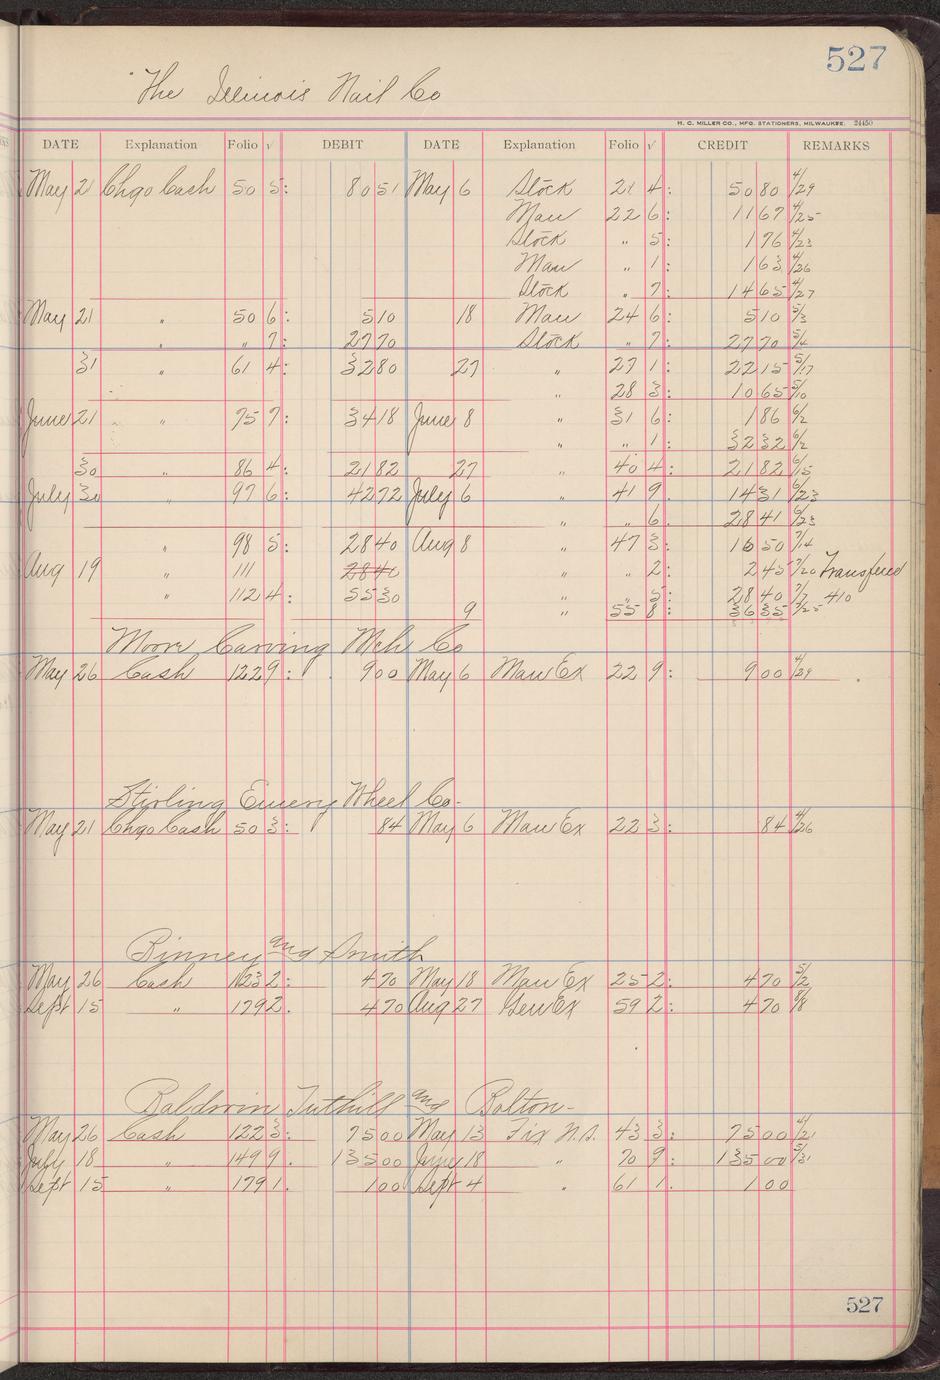 527
The Illinois Nail Co
H. C. MILLER CO., MFG. STATIONERS, MILWAUKEE. 24450
DATE Explanation Folio √ DEBIT DATE Explanation Folio √ CREDIT REMARKS
May 21 Chgo Cash 50 5: 80 51 May 6 Stock 21 4: 50 80 4/29
Man 22 6: 11 67 4/25
Stock " 5: 1 96 4/23
Man " 1: 1 63 4/26
Stock " 7: 14 65 4/27
May 21 " 50 6: 5 10 18 Man 24 6: 5 10 5/3
" " 7: 27 70 Stock " 7: 27 70 5/4
31 " 61 4: 32 80 27 " 27 1: 22 15 5/17
" 28 3: 10 65 5/10
June 21 " 75 7: 34 18 June 8 " 31 6: 1 86 6/2
" " 1: 32 32 6/2
30 " 86 4: 21 82 27 " 40 4: 21 82 6/15
July 30 " 97 6: 42 72 July 6 " 41 9. 14 31 6/23
" " 6. 28 41 6/23
" 98 5: 28 40 Aug 8 " 47 3: 16 50 7/14
Aug 19 " 111 28 40 " " 2: 2 45 7/20 Transfered
" 112 4: 55 30 " " 5: 28 40 7/7 410
9 " 55 8: 36 35 7/25
Moore Carving Mch Co
May 26 Cash 122 9: 9 00 May 6 Man Ex 22 9: 9 00 4/29
Stirling Emery Wheel Co.
May 21 Chgo Cash 50 3: 84 May 6 Man Ex 22 3: 84 4/26
Binney and Smith
May 26 Cash 123 2: 4 70 May 18 Man Ex 25 2: 4 70 5/2
Sept 15 " 179 2. 4 70 Aug 27 Gen Ex 59 2: 4 70 8/8
Baldwin Tuthill and Bolton
May 26 Cash 122 3: 75 00 May 13 Fix N.S. 43 3: 75 00 4/21
July 18 " 149 9. 135 00 June 18 " 70 9: 135 00 5/31
Sept 15 " 179 1. 1 00 Sept 4 " 61 1. 1 00
527